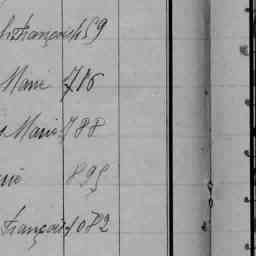 François 459
Marie 786
Marie 788
895
François 1082